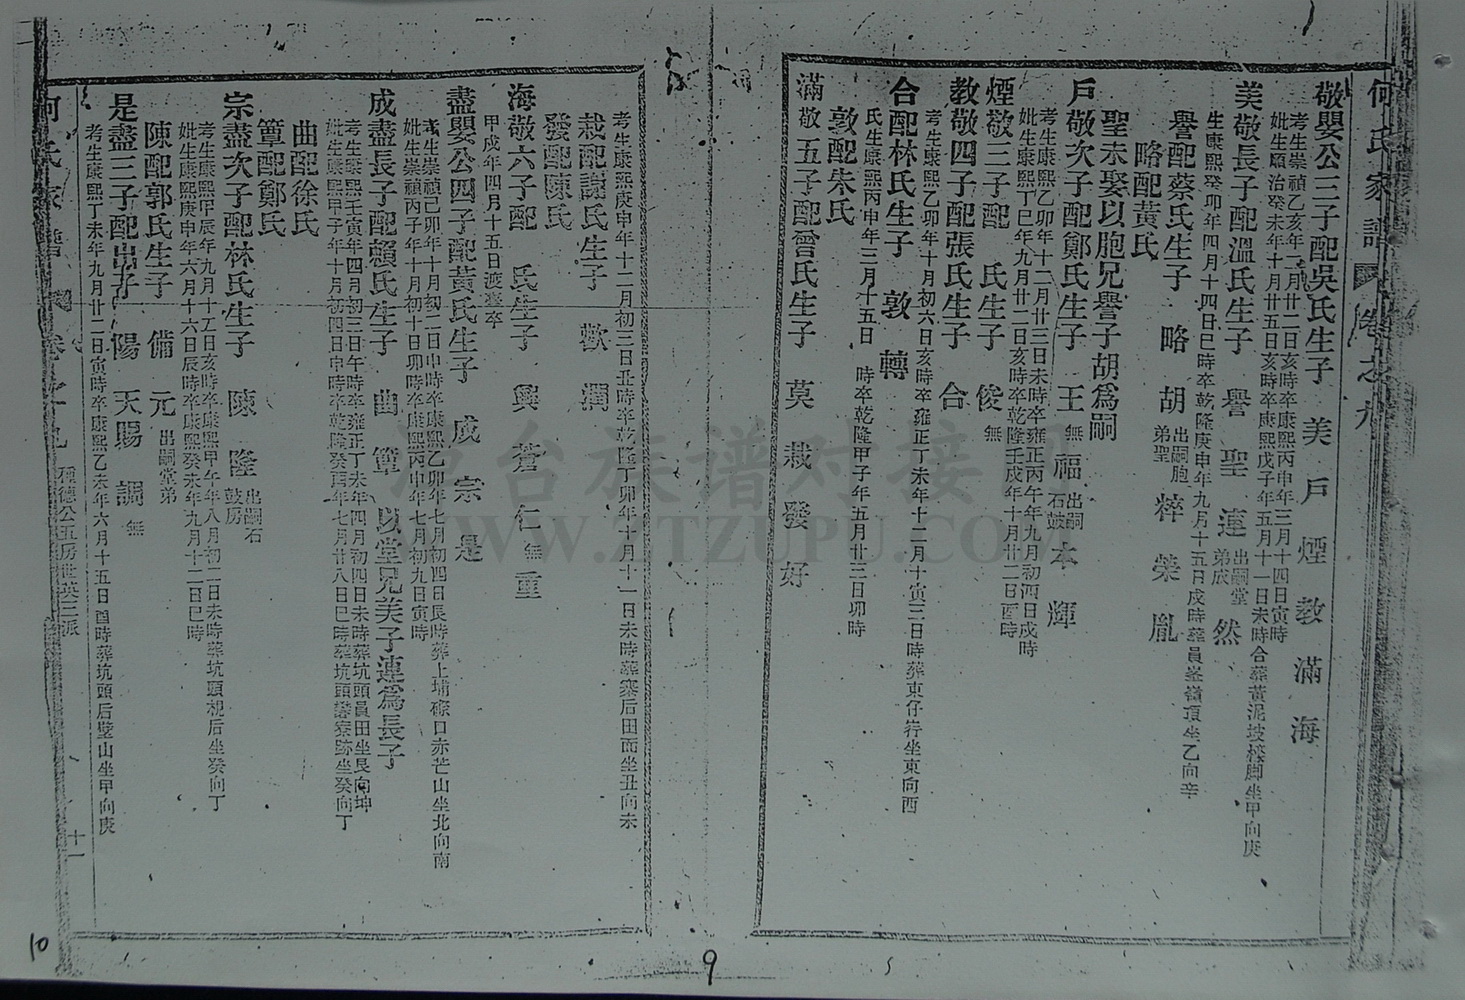 何氏家譜 卷之九
敬嬰公三子配吳氏生子 美 戶 煙 教 滿 海
考生崇禎乙亥年 月廿二日亥時卒康熙丙申年三月十四日寅時
妣生順治癸未年十月廿五日亥時卒康熙戊子年五月十一日未時合葬黃泥坡 脚坐甲向庚
美敬長子配溫氏生子 譽 聖 連 出嗣堂弟成 然
生康熙癸卯年四月十四日巳時卒乾隆庚申年九月十五日戌時葬員 嶺頂坐乙向辛
譽配蔡氏生子 略 胡 出嗣胞弟聖 粹 榮 胤
略配黃氏
聖未娶以胞兄譽子胡為嗣
戶敬次子配鄭氏生子 王 無 福 出嗣石鼓 本 輝
考生康熙乙卯年十二月廿三日未時卒雍正丙午年九月初四日戌時
妣生康熙丁巳年九月廿二日亥時卒乾隆壬戌年十月廿二日酉時
煙敬三子配 氏生子 俊 無
教敬四子配張氏生子 合
考生康熙乙卯年十月初六日亥時卒雍正丁未年十二月十寅三日時葬東仔 坐東向酉
合配林氏生子 敦 轉
氏生康熙丙申年三月十五日 時卒乾隆甲子年五月廿三日卯時
敦配朱氏
滿敬五子配曾氏生子 莫 栽 發 好
考生康熙庚申年十二月初三日丑時卒乾隆丁卯年十月十一日未時葬寨后田面坐丑向未
栽配謝氏生子 歡 潤
發配陳氏
海敬六子配 氏生子 興 蒼 仁 無 重
甲戌年四月十五日渡臺卒
盡嬰公四子配黃氏生子 成 宗 是
考生崇禎己卯年十月初二日申時卒康熙乙卯年七月初四日艮時葬上埔磜口赤芒山坐北向南
妣生崇禎丙子年十月初十日卯時卒康熙丙申年七月初九日寅時
成盡長子配賴氏生子 曲 簟 以堂兄美子連為長子
考生康熙壬寅年四月初三日午時卒雍正丁未年四月初四日未時葬坑頭員田坐艮向坤
妣生康熙甲子年十月初四日申時卒乾隆癸酉年七月廿八日巳時葬坑頭 寮跡坐癸向丁
曲配徐氏
簟配鄭氏
宗盡次子配林氏生子 陳 隆 出嗣石鼓房
考生康熙甲辰年九月十五日亥時卒康熙甲午年八月初二日未時葬坑頭 后坐癸向丁
妣生康熙庚申年六月十六日辰時卒康熙癸未年九月十二日巳時
陳配郭氏生子 備 元 出嗣堂弟
是盡三子配出子 陽 天賜 調 無
考生康熙丁未年九月廿二日寅時卒康熙乙未年六月十五日酉時葬坑頭后壁山坐甲向庚
何氏家譜 卷之九 種德公五房世英三派 十一
10
9
台族谱对接网
WWW.ZTZUPU.COM